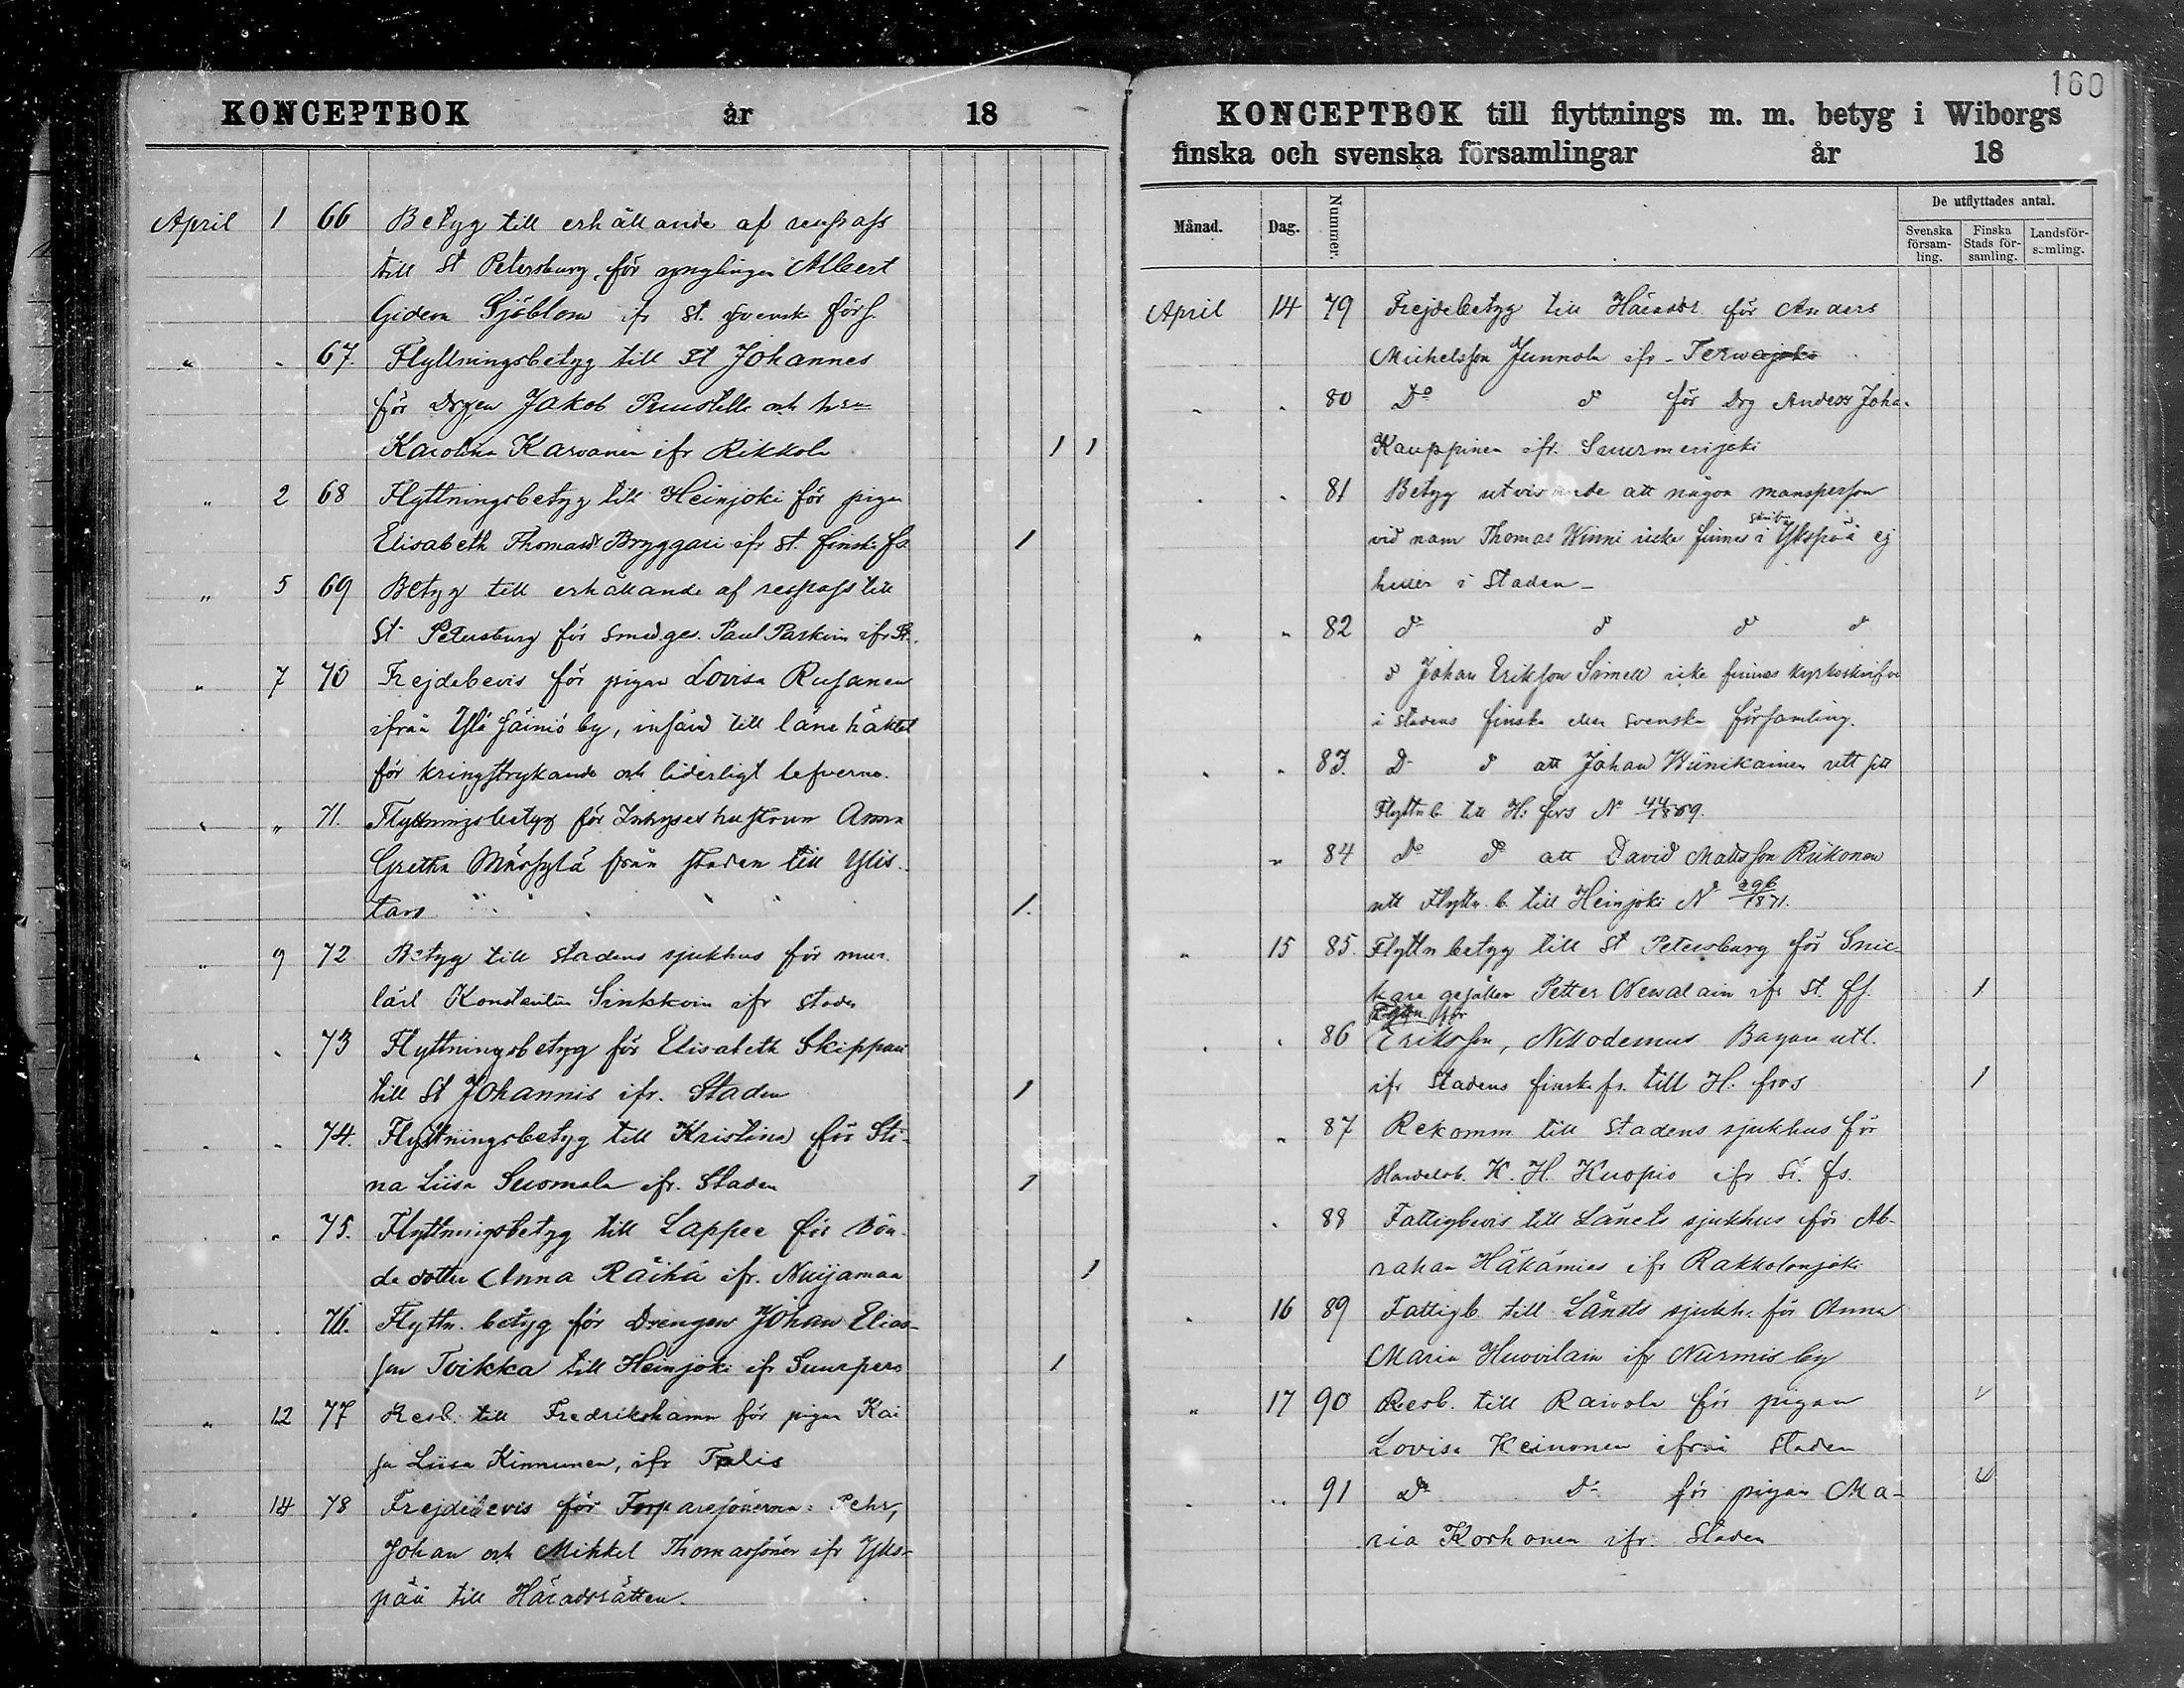 KONCEPTBOK år 18
April 1 66 Betyg till erhållande af respass
till St Petersburg, för ynglingen Albert
Gideon Sjöblom ifr St. svenska förs.
" " 67. Flyttningsbetyg till St Johannes
för Drgen Jakob Puustelli och hrun
Karolina Karvanen ifr Rikkola 1 1
" 2 68 Flyttningsbetyg till Heinjoki för pigan
Elisabeth Thomasdr Bryggari ifr St. finska fs. 1
" 5 69 Betyg till erhållande af respass till
St Petersburg för smedges. Paul Parkin ifr St.
" 7 70 Frejdebevis för pigan Lovisa Rusanen
ifrån Ylä Säiniö by, införd till läns häktet
för kringstrykande och liderligt lefverne.
" " 71. Flyttningsbetyg för Inhyses hustrun Anna
Gretha från staden till Ylis-
taro 1.
" 9 72 Betyg till stadens sjukhus för mur.
lärl Konstantin Sinkkoin ifr staden
" " 73 Flyttningsbetyg för Elisabeth Skippari
till St Johannis ifr. Staden 1
" " 74. Flyttningsbetyg till Kristina för Sti-
na Liisa Suomala ifr. Staden 1
" " 75. Flyttningsbetyg till Lappee för Bon-
de dotter Anna Räihä ifr. Nuijamaa 1
" " 76. Flyttn. betyg för Drengen Johan Elias-
son Toikka till Heinjoki ifr Suurpero 1
" 12 77 Resb. till Fredrikshamn för pigan Kai
sa Liisa Kinnunen, ifr Talis
" 14 78 Frejdebevis för Torparesönerna: Pehr,
Johan och Mikkel Thomassöner ifr Yks-
pää till Häradsrätten.
160
KONCEPTBOK till flyttnings m. m. betyg i Wiborgs
finska och svenska församlingar år 18
Månad. Dag. Nummer. De utflyttades antal.
Svenska försam-ling. Finska Stads för-samling. Landsför-samling.
April 14 79 Frejdebetyg till Häradsr för Anders
Michelsson Junnola ifr. Terwajoki
" " 80 Do do för Drg Anders Joha.
Kauppinen ifr. Suurmerijoki
" " 81 Betyg utvisande att någon mansperson
vid namn Thomas Winni icke finnes i Ykspää ej
heller i Staden
" " 82 do do do do
do Johan Eriksson Simell icke finnes kyrkoskrifven
i stadens finska eller svenska församling.
" " 83. Do do att Johan Wiinikainen utt sitt
Flyttn b. till H:fors No 44/1869.
" 84 do do att David Matsson Riikonen
utt Flyttn. b. till Heinjoki No 296/1871.
" 15 85. Flyttn betyg till St Petersburg för Snic-
kare gesällen Petter Newalain ifr St. ff. 1
Flyttn. för
" " 86 Eriksson, Nikodemus Bagare utl.
ifr Stadens finska fs. till H:fors 1
" 87 Rekomm till Stadens sjukhus för
Handelsb. K. H. Kuopio ifr St. fs.
" 88 Fattigbevis till Länets sjukhus för Ab-
raham Häkämies ifr Rakkolanjoki
" 16 89 Fattigb. till Länets sjukh. för Anna
Maria Huovilain ifr Nurmis by
" 17 90 Resb. till Raivola för pigan
Lovisa Keinonen ifrån Staden
" " 91 Do Do för pigan Ma-
ria Korhonen ifr. Staden